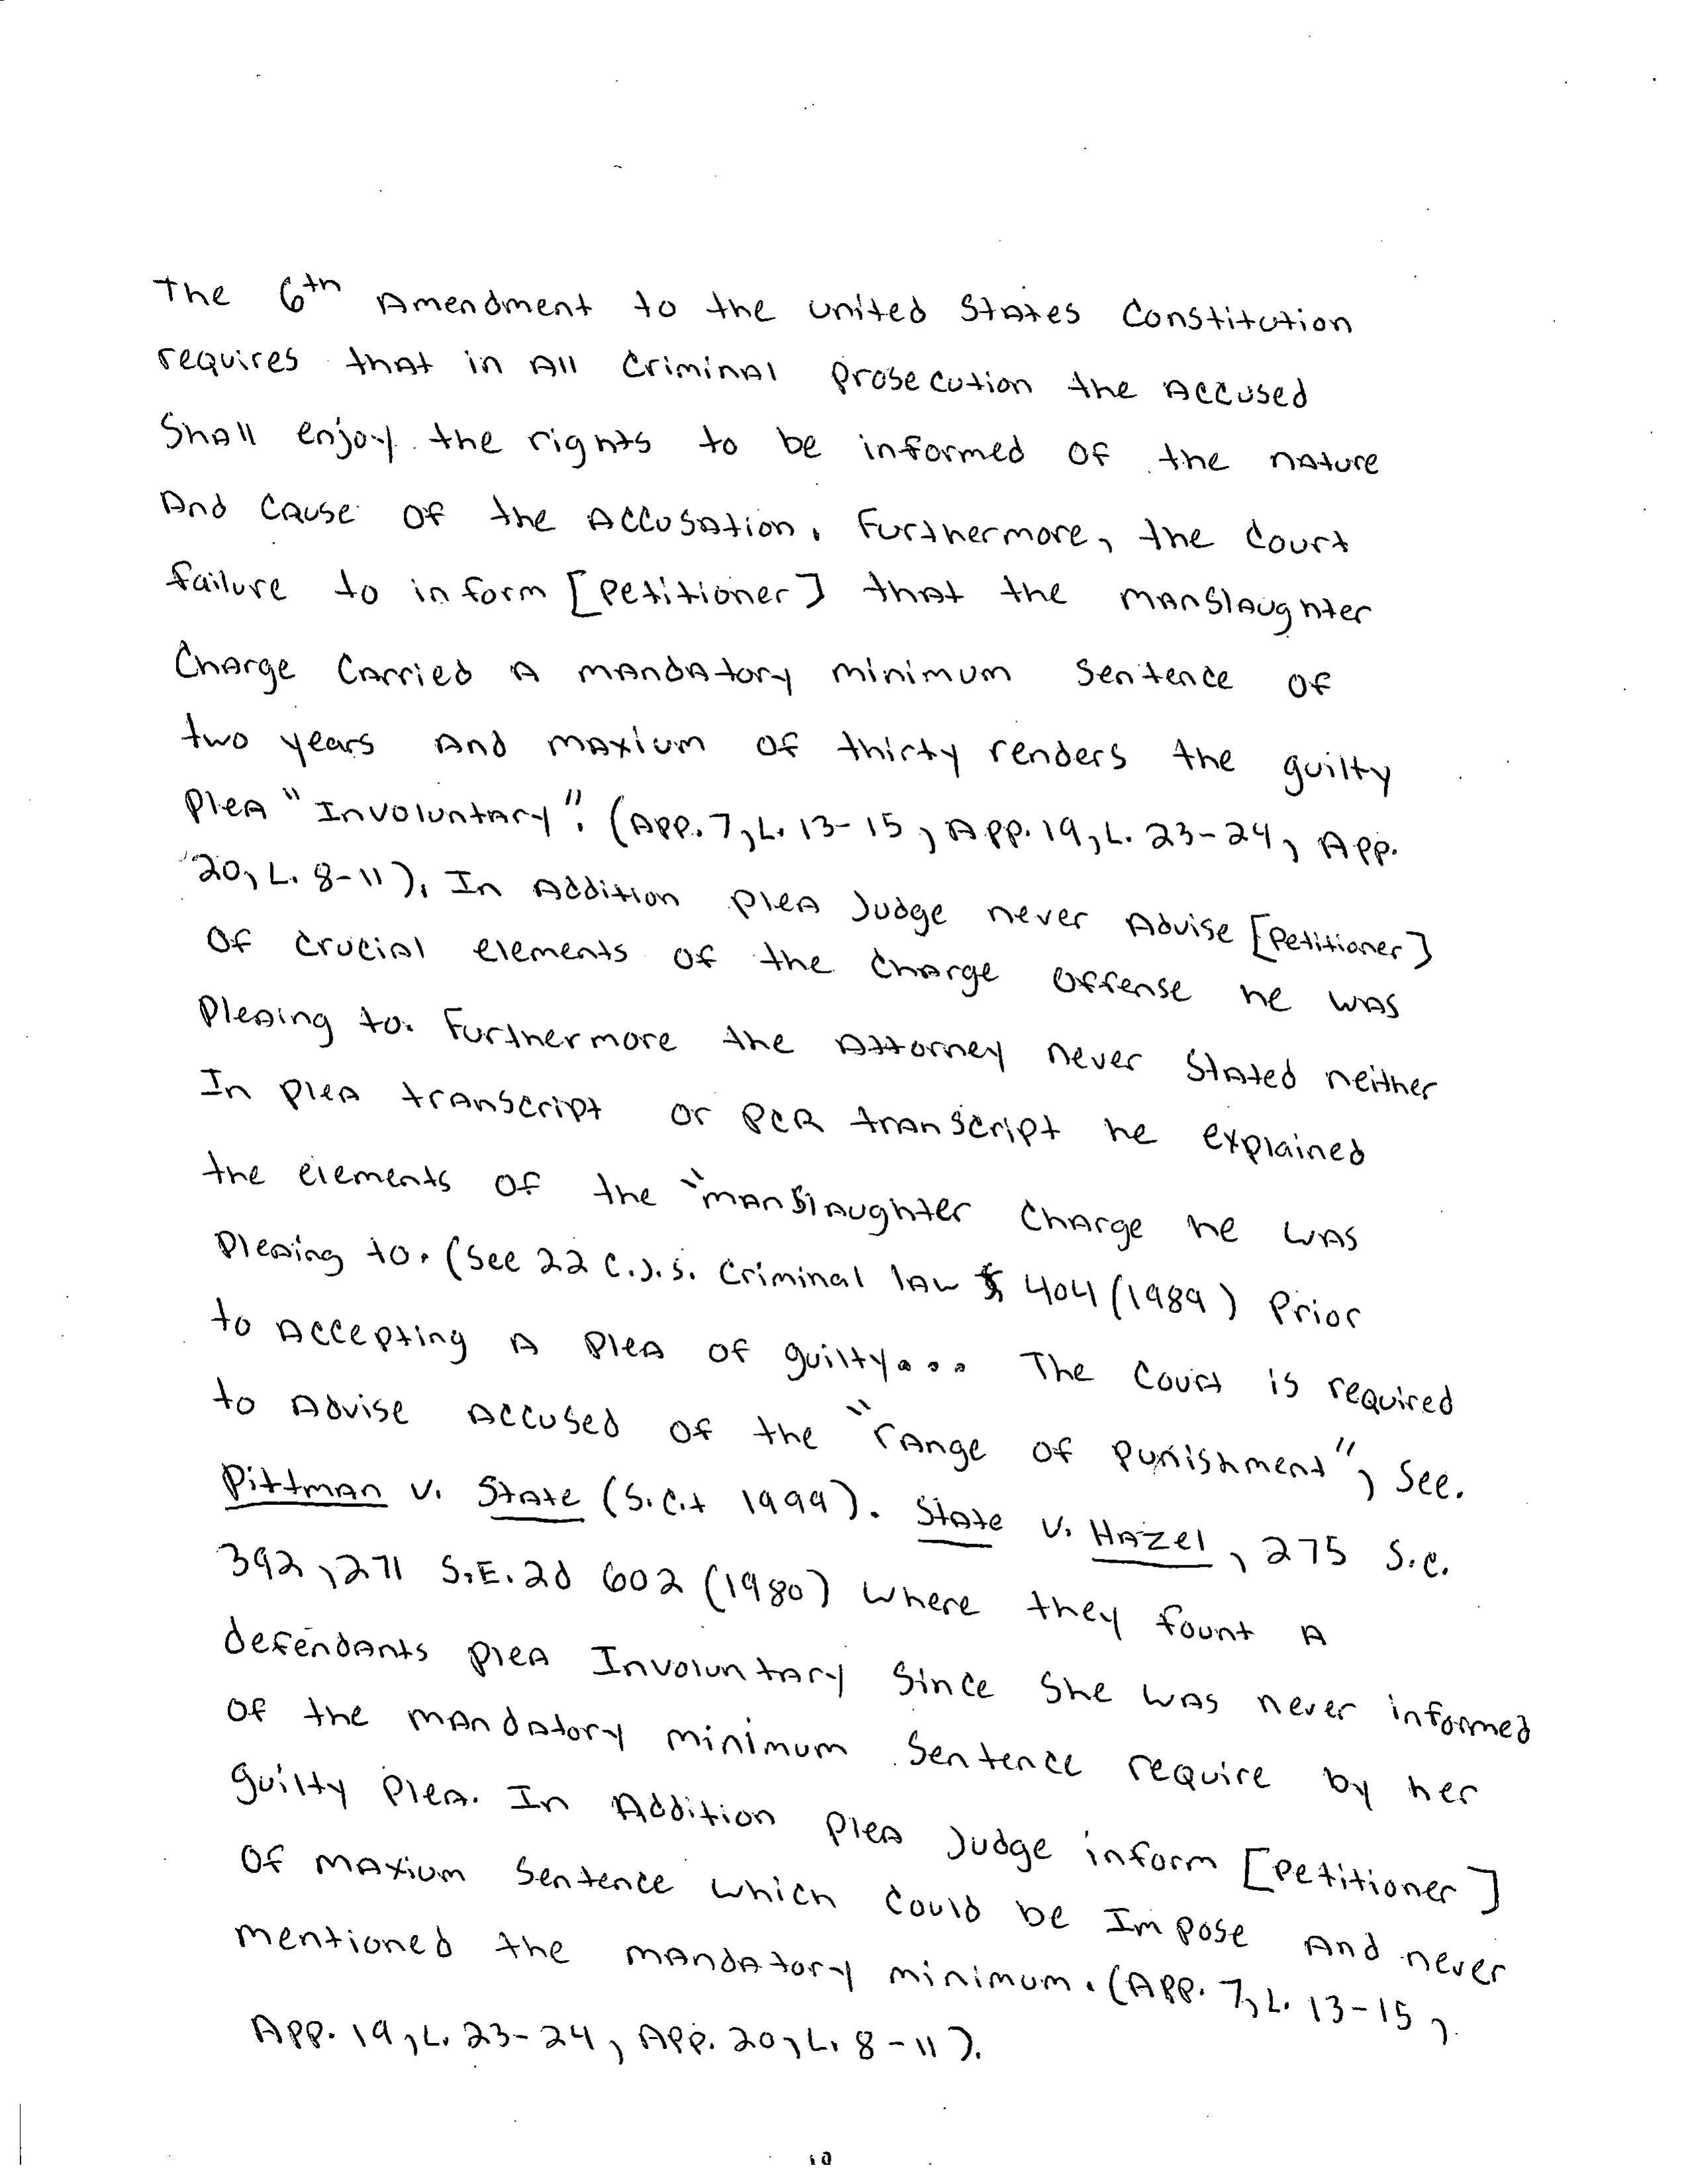 The 6th Amendment to the united States Constitution
requires that in All Criminal prosecution the Accused
Shall enjoy the rights to be informed of the nature
And Cause of the Accusation. Furthermore, the Court
failure to inform [Petitioner] that the manslaughter
Charge Carried A mandatory minimum Sentence of
two years and maxium of thirty renders the guilty
Plea "Involuntary". (App. 7, L. 13-15, App. 19, L. 23-24, App.
20, L. 8-11). In Addition plea Judge never Advise [Petitioner]
Of crucial elements of the Charge Offense he was
Pleaing to. Furthermore the Attorney never Stated neither
In Plea transcript or PCR transcript he explained
the elements of the "manslaughter Charge he was
Pleaing to. (See 22 C.J.S. Criminal law § 404 (1989) Prior
to Accepting A Plea of guilty... The Court is required
to Advise Accused of the "range of punishment", See.
Pittman v. State (S.C.t 1999). State v. Hazel, 275 S.C.
392, 271 S.E.2d 602 (1980) Where they fount A
defendants plea Involuntary Since She was never informed
Of the mandatory minimum Sentence require by her
guilty Plea. In Addition Plea Judge inform [Petitioner]
Of maxium Sentence which Could be Impose And never
mentioned the mandatory minimum. (App. 7, L. 13-15,
App. 19, L. 23-24, App. 20, L. 8-11).